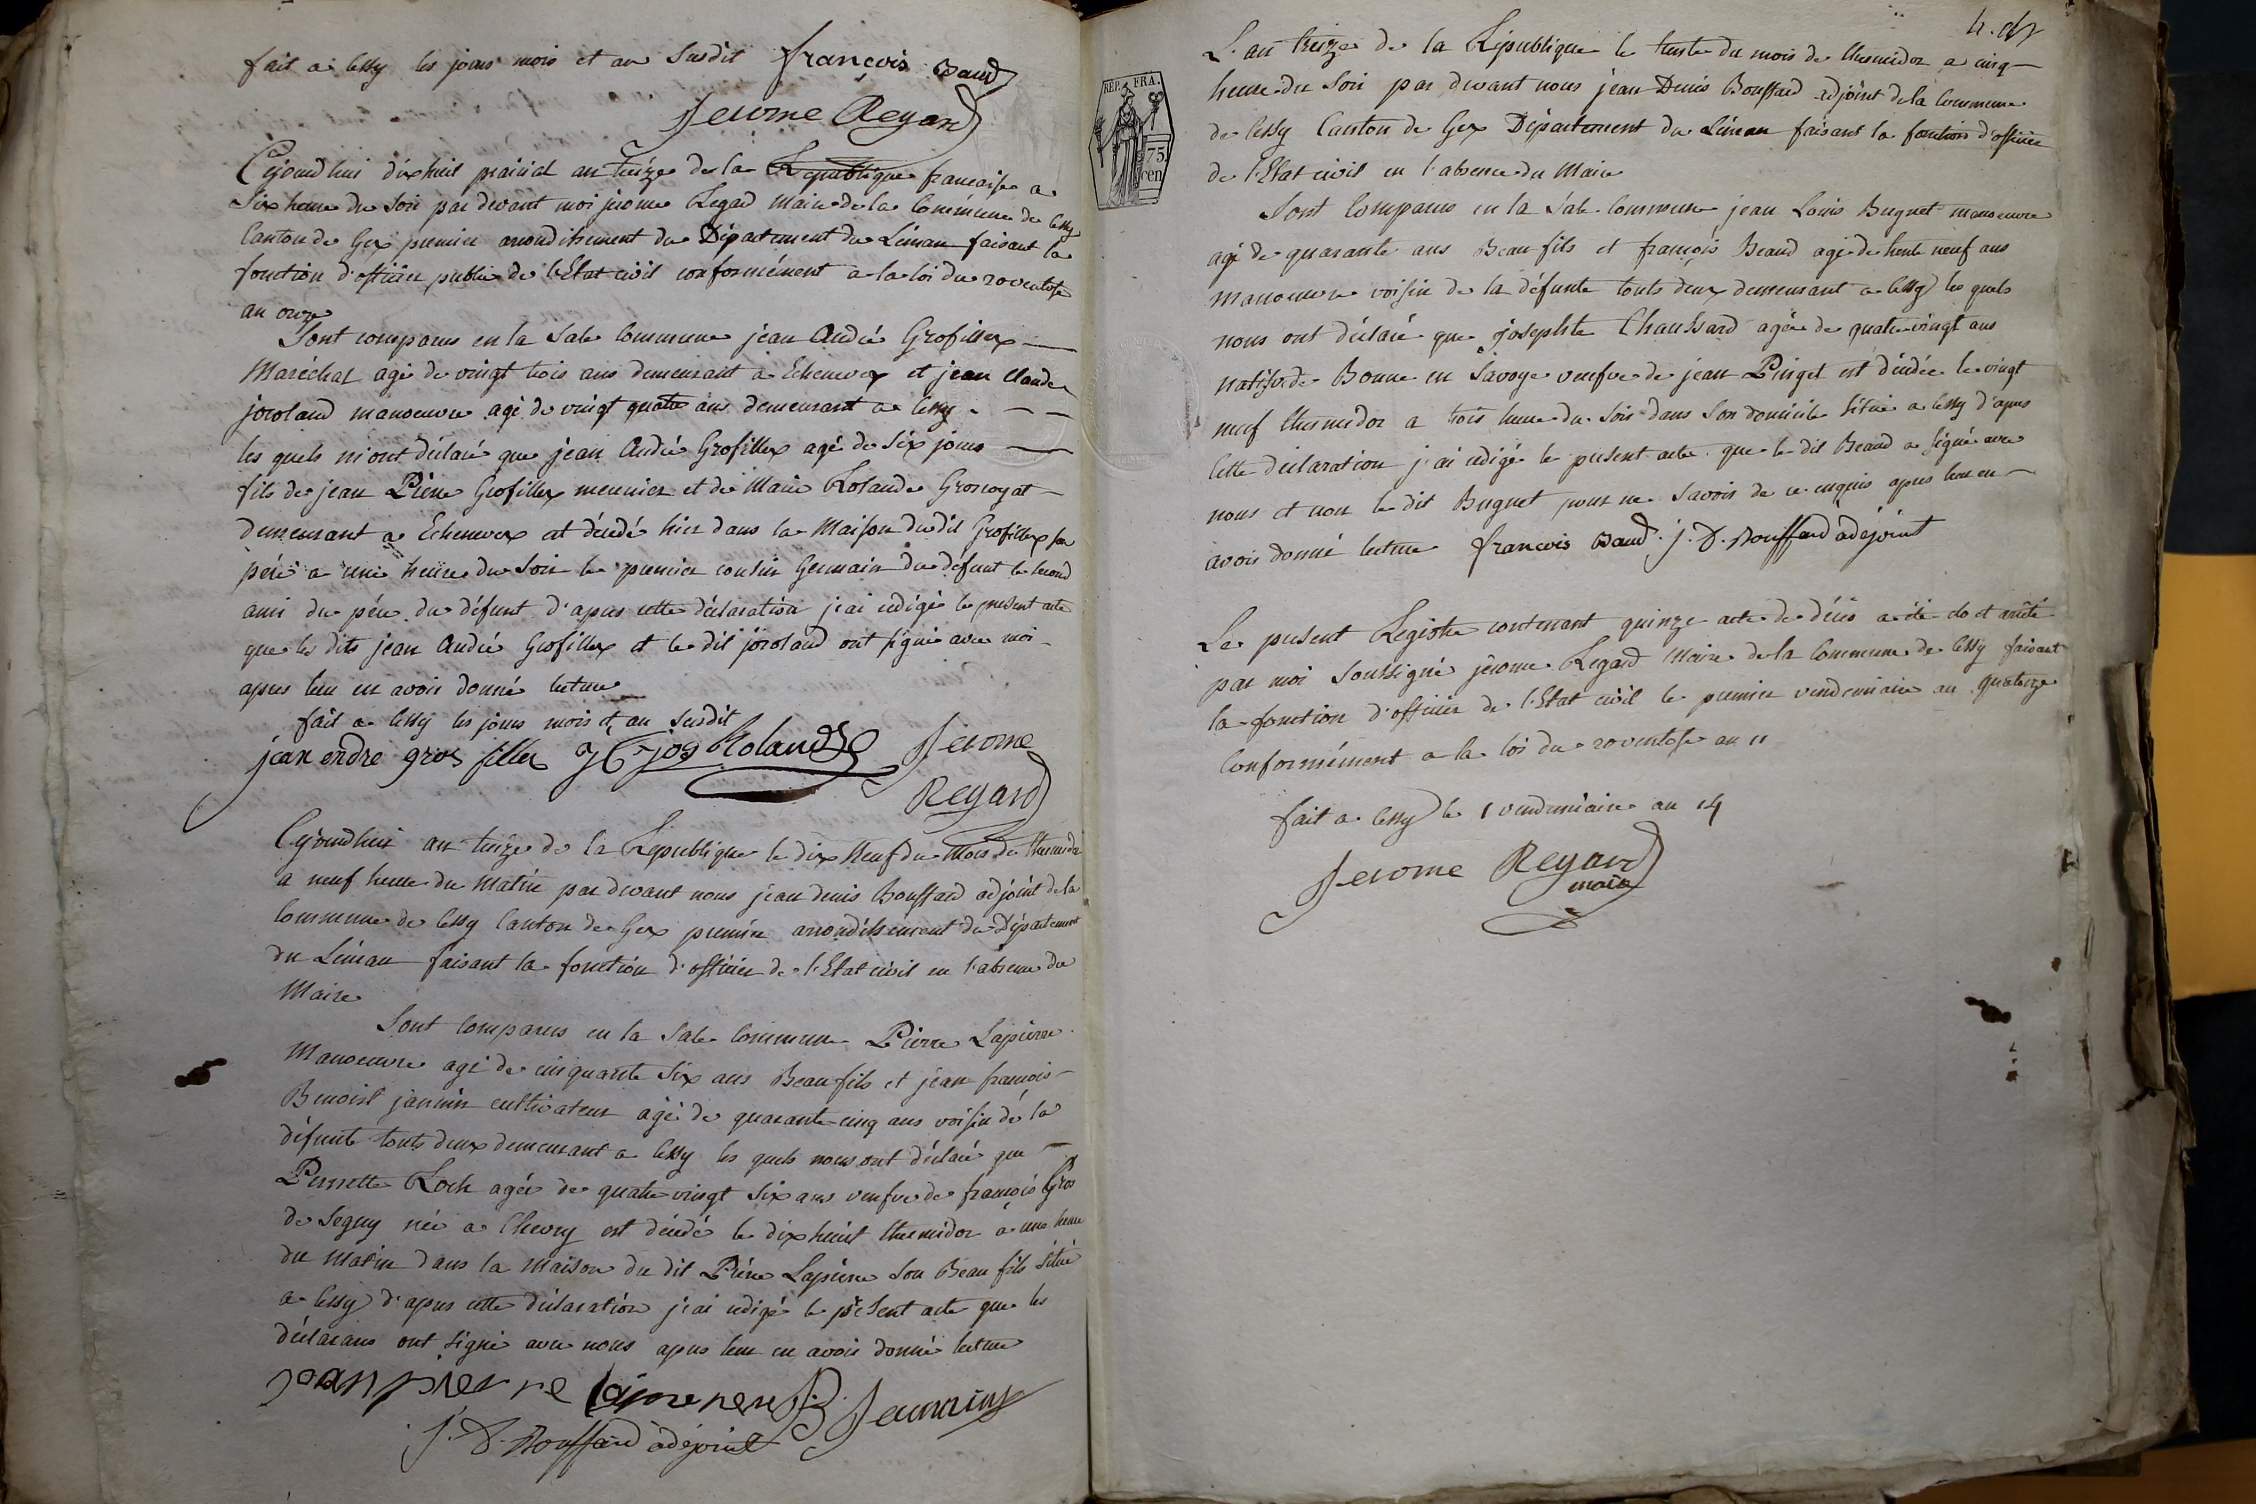 fait a Cessy les jours mois et an susdit françois Baud
Jerome Regard
Cejourdhui dixhuit prairial an treize de la Republique francaise a
six heure du soir par devant moi jerome Regard maire de la Commune de Cessy
Canton de Gex premier arrondissement du Département du Léman faisant la
fonction d'officier public de l'Etat civil conformément a la loi du 20 ventose
an onze
Sont comparus en la Sale Commune jean André Grosfillex
Maréchal agé de vingt trois ans demeurant a Echenevex et jean claude
joroland manoeuvre agé de vingt quatre ans demeurant a Cessy
les quels m'ont déclaré que jean André Grosfillex agé de six jours
fils de jean Piérre Grosfillex meunier et de Marie Rolande Grosroyat
demeurant a Echenevex est décédé hier dans la Maison du dit Grosfillex son
pére a une heure du soir le premier cousin Germain du defunt le second
ami du pére du défunt d'apres cette déclaration j'ai redigé le présent acte
que les dits jean André Grosfillex et le dit joroland ont signé avec moi
apres leur en avoir donné lecture
fait a Cessy les jours mois et an susdit
jean endre gros fillex Roland Jerome
Regard
Cejourdhui an treize de la Republique le dix Neuf du Mois de thermidor
a neuf heure du Matin par devant nous jean denis Bouffard adjoint de la
Commune de Cessy Canton de Gex premier arrondissement du Département
du Léman faisant la fonction d'officier de l'Etat civil en l'absence du
Maire
Sont comparus en la Sale Commune Pierre Lapierre
Manoeuvre agé de cinquante six ans Beau fils et jean francois
Benoist janin cultivateur agé de quarante cinq ans voisin de la
défunte touts deux demeurant a Cessy les quels nous ont déclaré que
Pernette Roch agée de quatre vingt six ans veufve de françois Gros
de Segny née a Chevry est décédé le dixhuit thermidor a une heure
du Matin dans la Maison du dit Piérre Lapierre son Beau fils situé
a Cessy d'apres cette déclaration j'ai redigé le présent acte que les
déclarans ont signé avec nous apres leur en avoir donné lecture
jean pierre
J. D. Bouffard adejoint
L'an treize de la République le trente du mois de thermidor a cinq
heure du Soir par devant nous jean Denis Bouffard adjoint de la Commune
de Cessy Canton de Gex Département du Léman faisant la fonction d'officier
de l'Etat civil en l'absence du Maire
REP. FRA.
75
cen
Sont Comparus en la Sale Commune jean Louis Bugnet manoeuvre
agé de quarante ans Beau fils et françois Beaud agé de trente neuf ans
manoeuvre voisin de la défunte touts deux demeurant a Cessy les quels
nous ont déclaré que josephte Chaussard agée de quatre vingt ans
natifve de Bonne en Savoye veufve de jean Pinget est décédée le vingt
neuf thermidor a trois heure du Soir dans Son domicile Situé a Cessy d'apres
Cette déclaration j'ai redigé le présent acte que le dit Beaud a Signé avec
nous et non le dit Bugnet pour ne Savoir de ce enquis apres leur en
avoir donné lecture françois Baud. J. D. Bouffard adejoint
Le present Registre contenant quinze acte de décés a été clo et arrêté
par moi Soussigné jérome Regard Maire de la Commune de Cessy faisant
la fonction d'officier de l'Etat civil le premier vendemiaire an quatorze
Conformément a la loi du 20 ventose an 11
fait a Cessy le 1 vendemiaire an 14
Jerome Regard
maire